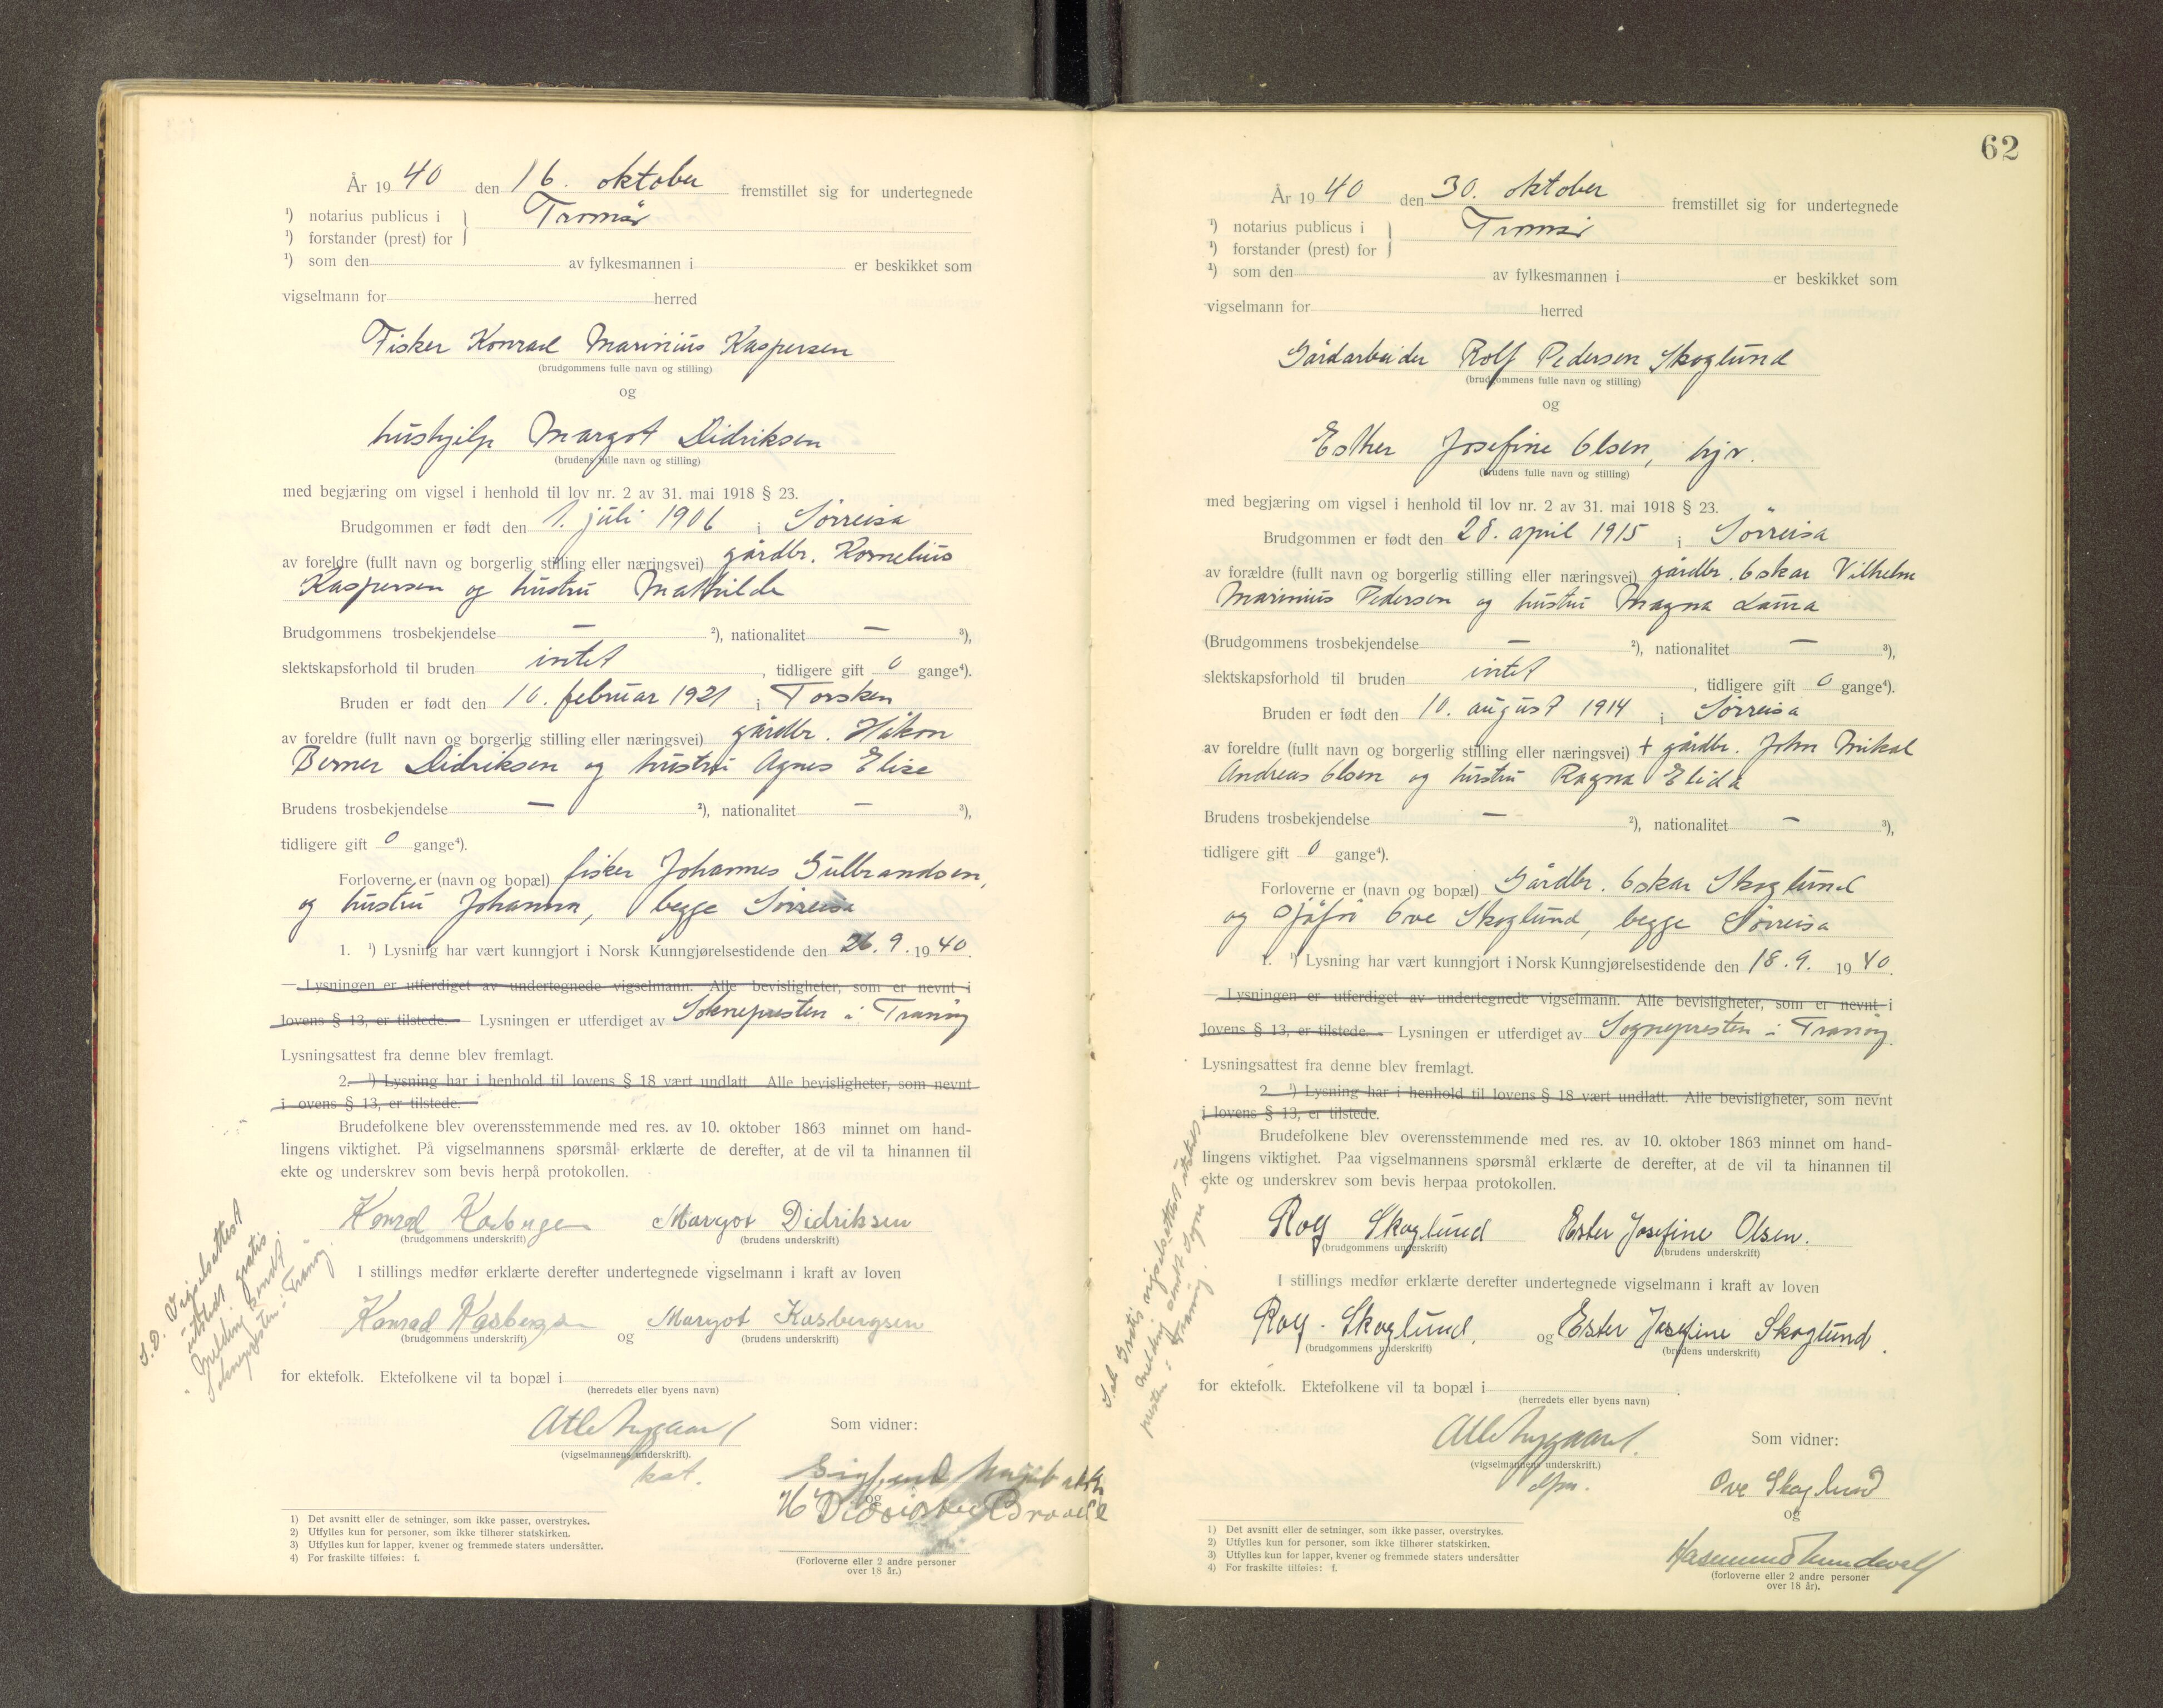 År 1940 den 16. oktober fremstillet sig for undertegnede
¹) notarius publicus i } Tromsø
¹) forstander (prest) for
¹) som den av fylkesmannen i er beskikket som
vigselmann for herred
Fisker Konrad Marinius Kaspersen
(brudgommens fulle navn og stilling)
og
hushjelp Margot Didriksen
(brudens fulle navn og stilling)
med begjæring om vigsel i henhold til lov nr. 2 av 31. mai 1918 § 23.
Brudgommen er født den 1. juli 1906 i Sörreisa
av foreldre (fullt navn og borgerlig stilling eller næringsvei) gårdbr. Kornelius
Kaspersen og hustru Mathilde
Brudgommens trosbekjendelse — ²), nationalitet — ³),
slektskapsforhold til bruden intet, tidligere gift 0 gange⁴).
Bruden er født den 10. februar 1921 i Torsken
av foreldre (fullt navn og borgerlig stilling eller næringsvei) gårdbr. Håkon
Berner Didriksen og hustru Agnes Elise
Brudens trosbekjendelse — ²), nationalitet — ³),
tidligere gift 0 gange⁴).
Forloverne er (navn og bopæl) fisker Johannes Gulbrandsen,
og hustru Johanna, begge Sörreisa
1. ¹) Lysning har vært kunngjort i Norsk Kunngjørelsestidende den 26.9.1940.
Lysningen er utferdiget av undertegnede vigselmann. Alle bevisligheter, som er nevnt i
lovens § 13, er tilstede. Lysningen er utferdiget av Soknepresten i Tranöy
Lysningsattest fra denne blev fremlagt.
2. ¹) Lysning har i henhold til lovens § 18 vært undlatt Alle bevisligheter, som nevnt
i ovens § 13, er tilstede.
Brudefolkene blev overensstemmende med res. av 10. oktober 1863 minnet om hand-
lingens viktighet. På vigselmannens spørsmål erklærte de derefter, at de vil ta hinannen til
ekte og underskrev som bevis herpå protokollen.
Konrad Kasbergsen Margot Didriksen
(brudgommens underskrift) (brudens underskrift)
I stillings medfør erklærte derefter undertegnede vigselmann i kraft av loven
Konrad Kasbergsen og Margot Kasbergsen
(brudgommens underskrift) (brudens underskrift)
for ektefolk. Ektefolkene vil ta bopæl i
(herredets eller byens navn)
Som vidner:
(vigselmannens underskrift).
og
(Forloverne eller 2 andre personer
over 18 år.)
S.D. Vigselsattest
utstedt gratis.
Melding sendt
Soknepresten i Tranöy.
1) Det avsnitt eller de setninger, som ikke passer, overstrykes.
2) Utfylles kun for personer, som ikke tilhører statskirken.
3) Utfylles kun for lapper, kvener og fremmede staters undersåtter.
4) For fraskilte tilføies: f.
62
År 1940 den 30. oktober fremstillet sig for undertegnede
¹) notarius publicus i } Tromsø
¹) forstander (prest) for
¹) som den av fylkesmannen i er beskikket som
vigselmann for herred
Gårdarbeider Rolf Pedersen Skoglund
(brudgommens fulle navn og stilling)
og
Esther Josefine Olsen, hjv.
(brudens fulle navn og stilling)
med begjæring om vigsel i henhold til lov nr. 2 av 31. mai 1918 § 23.
Brudgommen er født den 28. april 1915 i Sörreisa
av forældre (fullt navn og borgerlig stilling eller næringsvei) gårdbr. Oskar Vilhelm
Marinius Pedersen og hustru Magna Laura
(Brudgommens trosbekjendelse — ²), nationalitet — ³),
slektskapsforhold til bruden intet, tidligere gift 0 gange⁴).
Bruden er født den 10. august 1914 i Sörreisa
av foreldre (fullt navn og borgerlig stilling eller næringsvei) + gårdbr. John Mikal
Andreas Olsen og hustru Ragna Elida
Brudens trosbekjendelse — ²), nationalitet — ³),
tidligere gift 0 gange⁴).
Forloverne er (navn og bopæl) Gårdbr. Oskar Skoglund
og sjåfør Ove Skoglund, begge Sörreisa
1. ¹) Lysning har vært kunngjort i Norsk Kunngjørelsestidende den 18.9. 1940.
Lysningen er utferdiget av undertegnede vigselmann. Alle bevisligheter, som er nevnt i
lovens § 13, er tilstede. Lysningen er utferdiget av Sognepresten i Tranöy.
Lysningsattest fra denne blev fremlagt.
2. ¹) Lysning har i henhold til lovens § 18 vært undlatt. Alle bevisligheter, som nevnt
i lovens § 13, er tilstede.
Brudefolkene blev overensstemmende med res. av 10. oktober 1863 minnet om hand-
lingens viktighet. Paa vigselmannens spørsmål erklærte de derefter, at de vil ta hinannen til
ekte og underskrev som bevis herpaa protokollen.
Rolf Skoglund Ester Josefine Olsen.
(brudgommens underskrift) (brudens underskrift)
I stillings medfør erklærte derefter undertegnede vigselmann i kraft av loven
Rolf Skoglund. og Ester Josefine Skoglund.
(brudgommens underskrift) (brudens underskrift)
for ektefolk. Ektefolkene vil ta bopæl i
(herredets eller byens navn)
Som vidner:
(vigselmannens underskrift.)
Ove Skoglund
og
(forloverne eller 2 andre personer
over 18 år).
S.d. Gratis vigselsattest utstedt
Melding sendt Sogne-
presten i Tranöy.
1) Det avsnitt eller de setninger, som ikke passer, overstrykes.
2) Utfylles kun for personer, som ikke tilhører statskirken.
3) Utfylles kun for lapper, kvener og fremmede staters undersåtter
4) For fraskilte tilføies: f.